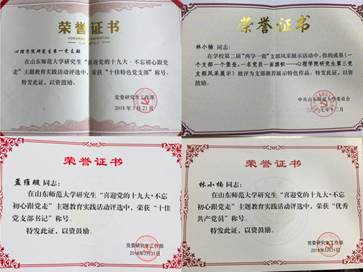 荣誉证书
心理学院研究生第一党支部
在山东师范大学研究生“喜迎党的十九大·不忘初心跟党走”主题教育实践活动评选中，荣获“十佳特色党支部”称号。
特发此证，以资鼓励。
党委研究生工作部
2018年3月21日
荣誉证书
林小楠 同志：
在学校第二届“两学一做”支部风采展示活动中，你的成果《一个支部一个堡垒，一名党员一面旗帜——心理学院研究生第三党支部风采展示》被评为支部推荐展示特色作品。
特发此证，以资鼓励。
荣誉证书
孟维骐 同志：
在山东师范大学研究生“喜迎党的十九大·不忘初心跟党走”主题教育实践活动评选中，荣获“十佳党支部书记”称号。
特发此证，以资鼓励。
党委研究生工作部
2018年3月21日
荣誉证书
林小楠 同志：
在山东师范大学研究生“喜迎党的十九大·不忘初心跟党走”主题教育实践活动评选中，荣获“优秀共产党员”称号。
特发此证，以资鼓励。
党委研究生工作部
2018年3月21日